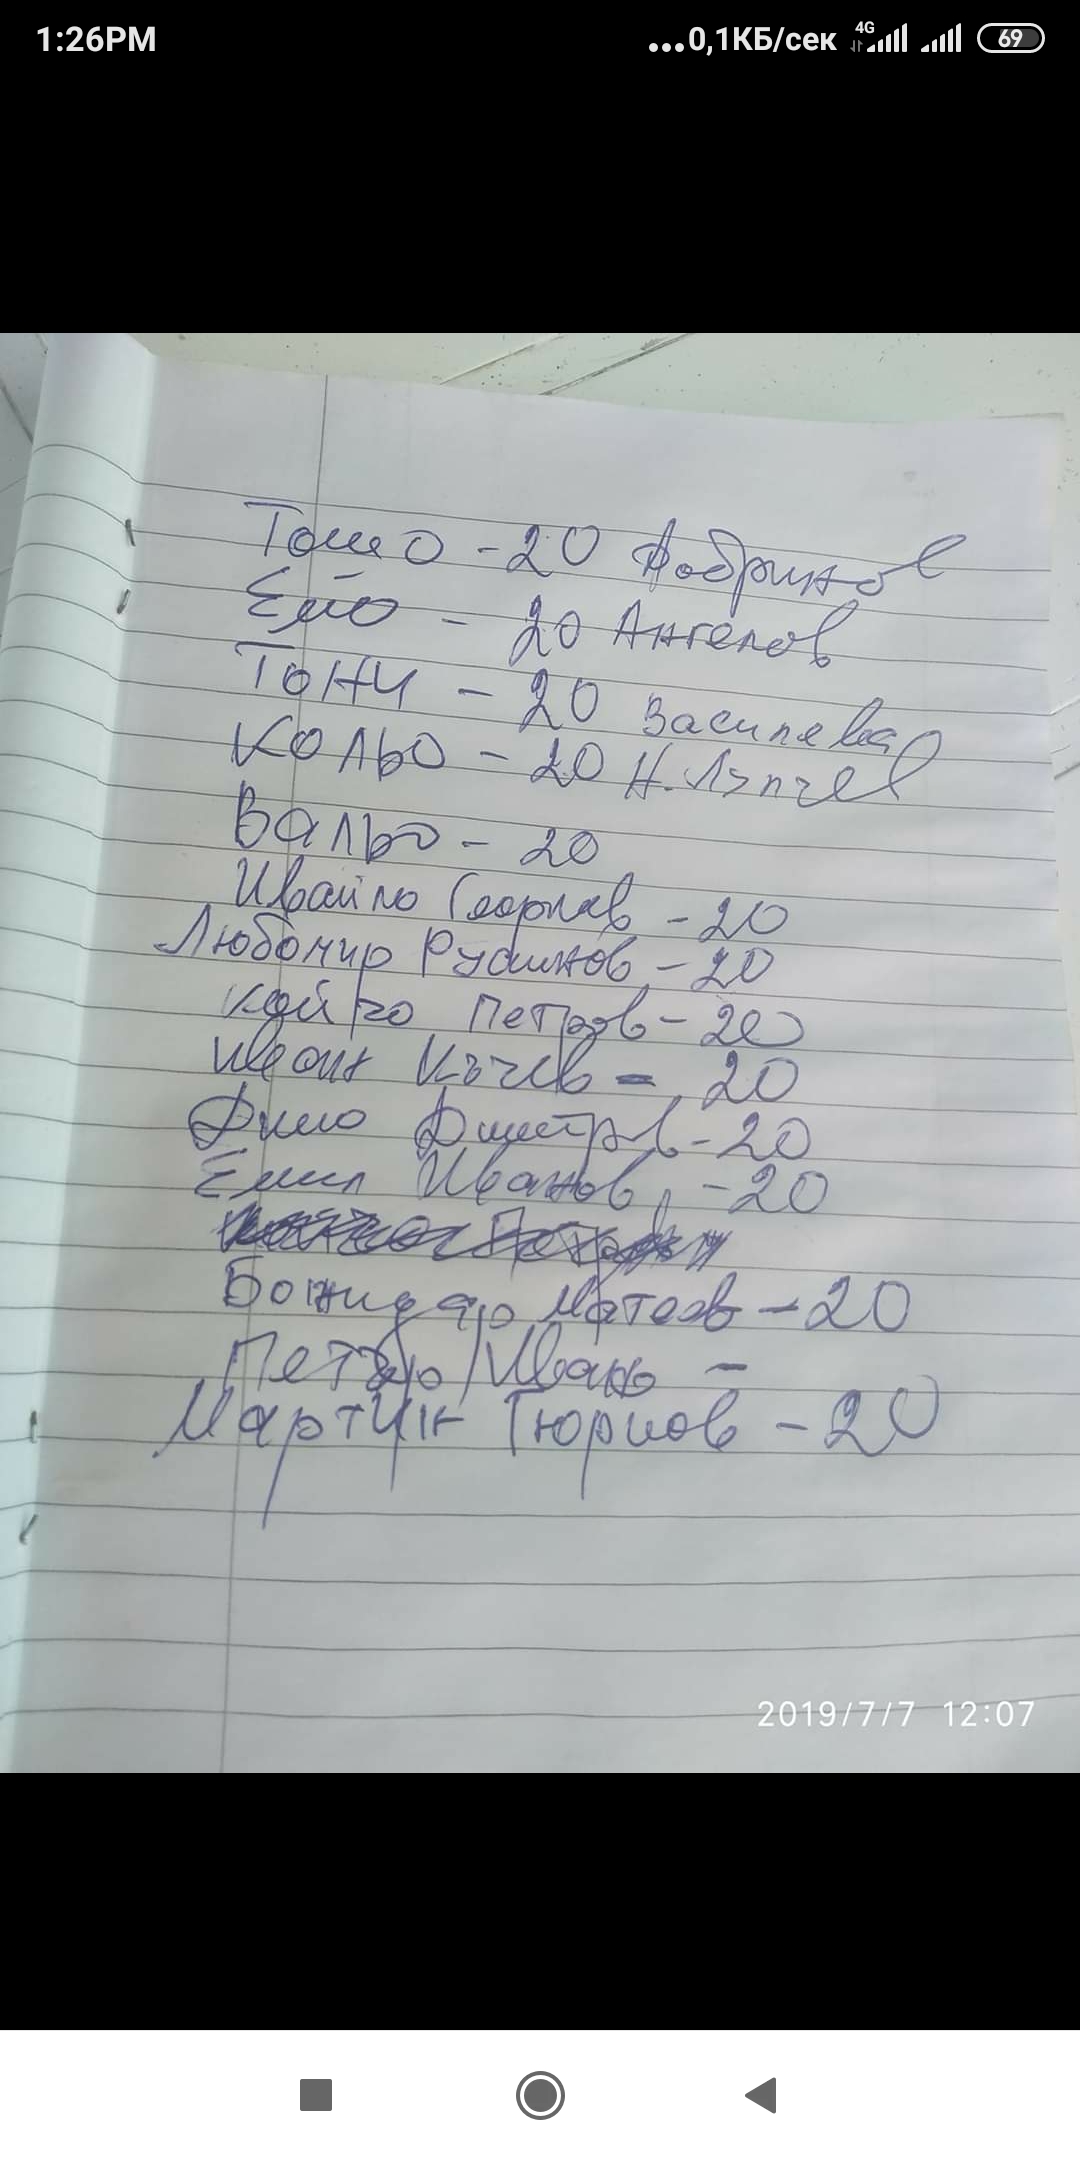 1:26PM
...0,1КБ/сек 4G 69
Тошо - 20 Добринов
Емо - 20 Ангелов
Тони - 20 Василева
Кольо - 20 Н. Лэпчев
Вальо - 20
Ивайло Георгиев - 20
Любомир Русинов - 20
Койчо Петров - 20
Иван Къчев - 20
Димо Димитров - 20
Емил Иванов - 20
Божидар Матеев - 20
Петър / Ивано -
Мартин Тюрков - 20
2019/7/7 12:07